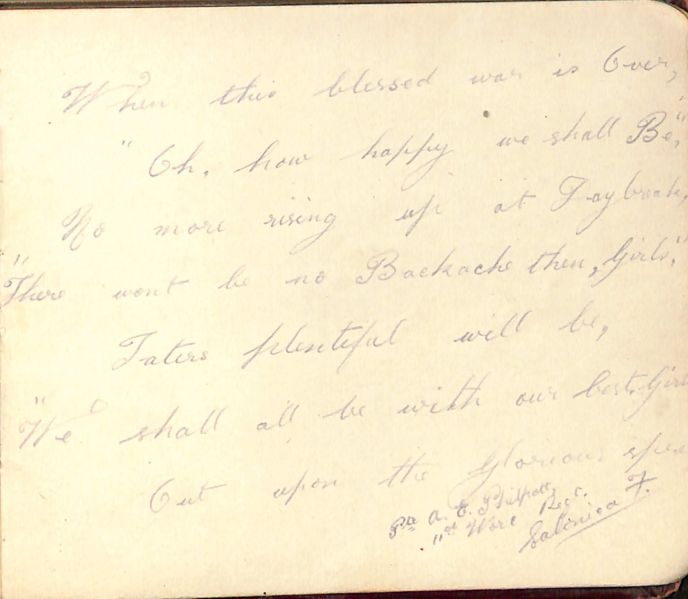 When this blessed war is Over,
"Oh, how happy we shall Be,"
No more rising up at Daybreak,
"There wont be no Backache then, Girls,"
Taters plentiful will be,
"We" shall all be with our best Girls
Out upon the Glorious spree
Pte A. E. Philpott,
11th Worc Regt.
Salonica F.